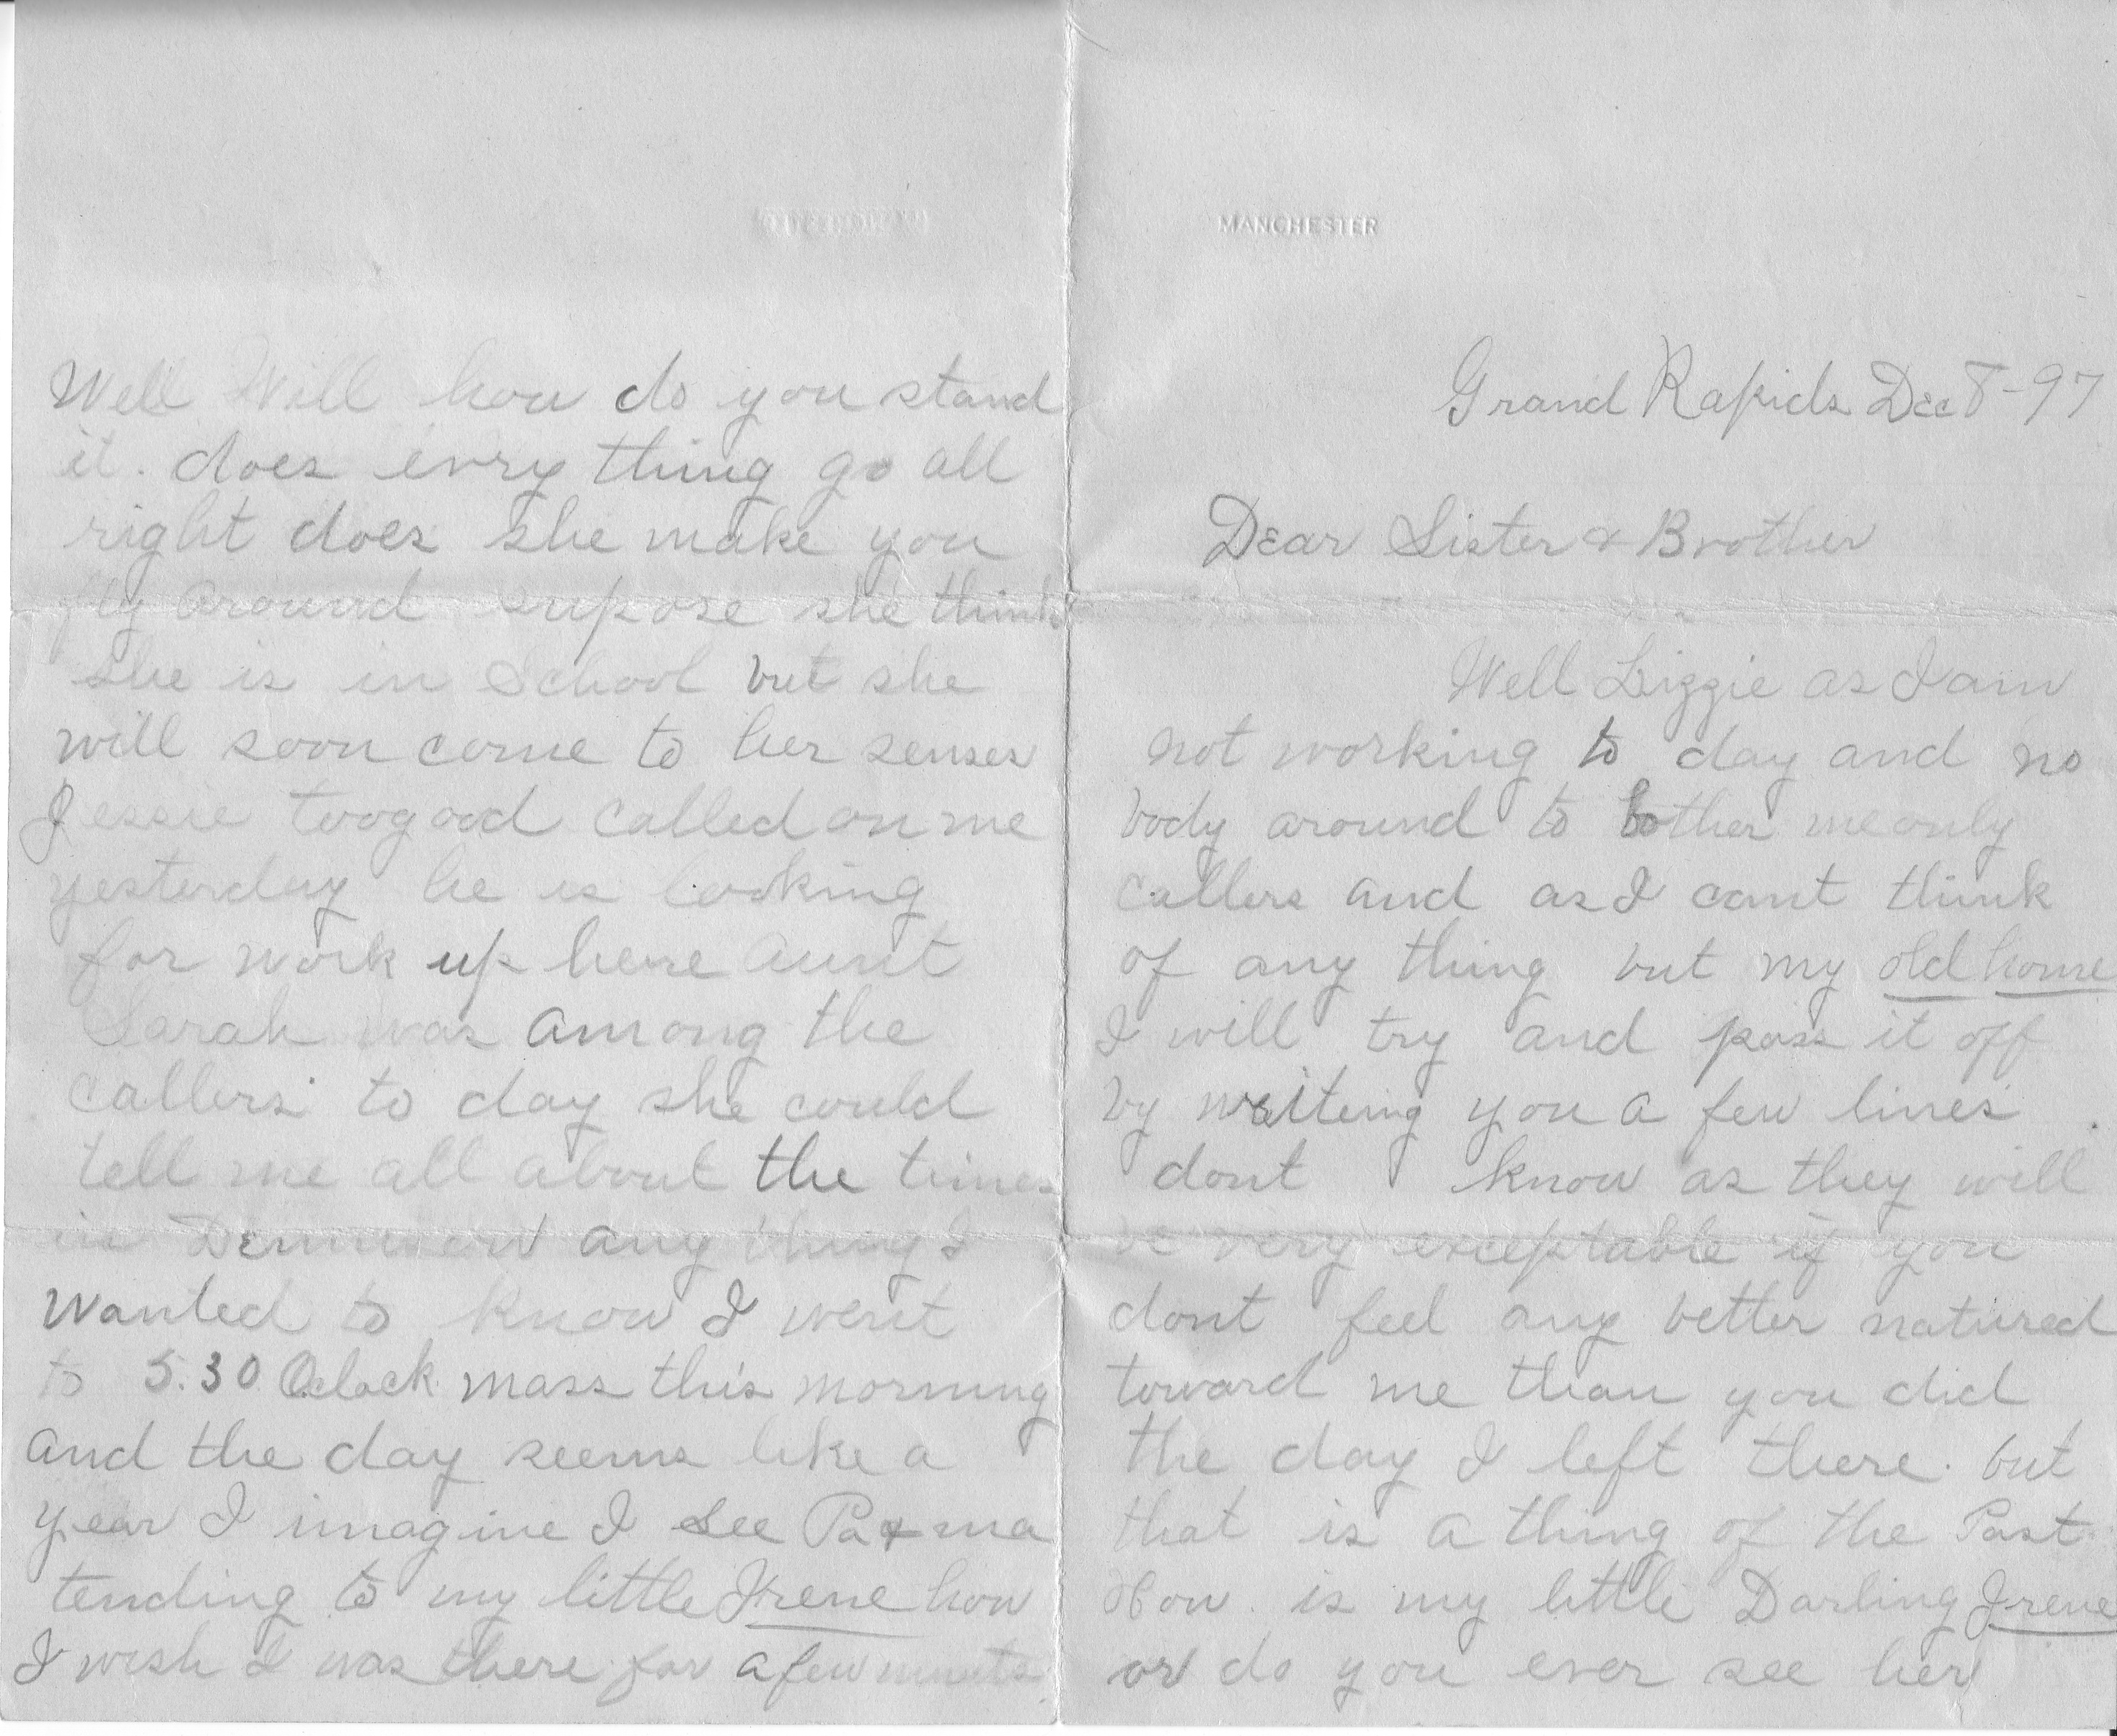 MANCHESTER
Grand Rapids Dec 8 - 97
Dear Sister & Brother
Well Lizzie as I am
not working to day and no
body around to bother me only
callers and as I cant think
of any thing but my old home
I will try and pass it off
by writeing you a few lines
dont know as they will
be very exceptable if you
dont feel any better natured
toward me than you did
the day I left there. but
that is a thing of the Past.
How is my little Darling Irene
or do you ever see her
Well Will how do you stand
it. does evry thing go all
right does she make you
fly around supose she think
she is in School but she
will soon come to her senses
Jessie toogood called on me
yesterday he is looking
for work up here aunt
Sarah was among the
callers to day she could
tell me all about the times
in any thing I
wanted to know I went
to 5.30 Oclock mass this morning
and the day seems like a
year I imagine I see Pa & ma
tending to my little Irene how
I wish I was there for a few